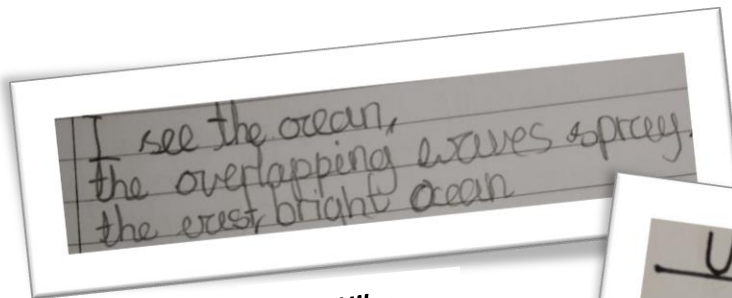 I see the ocean,
the overlapping waves spray.
the bright ocean
U